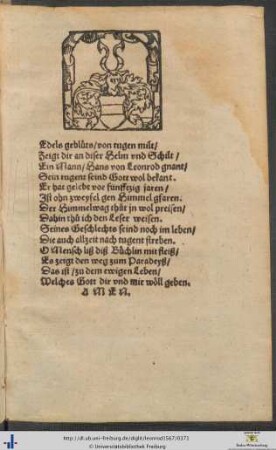 Edels geblüts/von tugen müt/
Zeigt dir an diser Helm vnd Schilt/
Ein Mann/Hans von Leonrod gnant/
Sein tugent seind Gott wol bekant.
Er hat gelebt vor fünffzig jaren/
Ist ohn zweyfel gen Himmel gfaren.
Der Himmelwag thůt jn wol preisen/
Dahin thů ich den Leser weisen.
Seines Geschlechts seind noch im leben/
Die auch allzeit nach tugent streben.
O Mensch liß diß Büchlin mit fleiß/
Es zeigt den weg zum Paradeyß/
Das ist/zu dem ewigen Leben/
Welches Gott dir vnd mir wöll geben.
A M E N.
http://dl.ub.uni-freiburg.de/diglit/leonrod1567/0171
© Universitätsbibliothek Freiburg
Baden-Württemberg